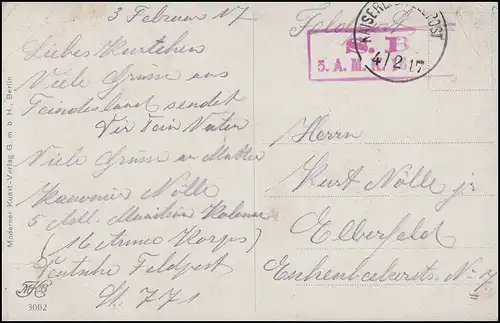 3 Februar 17
Liebes Kurtchen
Viele Grüsse aus
Feindesland sendet
Dir Dein Vater
Viele Grüsse an Mutter
Kanonier Nölle
5 Munition Kolonne
(16 Armee Korps)
Deutsche Feldpost
St. 771
Moderner Kunst-Verlag G. m. b. H., Berlin
3002
Feldpost
S. B
5. A. M. K.
KAISERL. POST
4/2 17
Herrn
Kurt Nölle jr
Elberfeld
Eschenbeekerstr. No 7